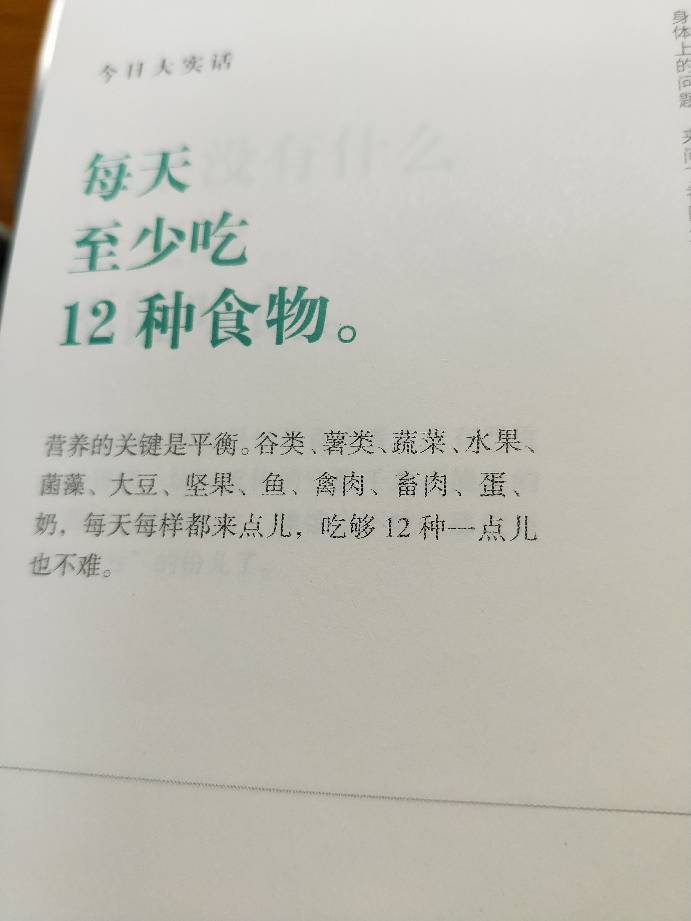 今日大实话
每天
至少吃
12种食物。
营养的关键是平衡。谷类、薯类、蔬菜、水果、
菌藻、大豆、坚果、鱼、禽肉、畜肉、蛋、
奶，每天每样都来点儿，吃够12种一点儿
也不难。
身体上的问题